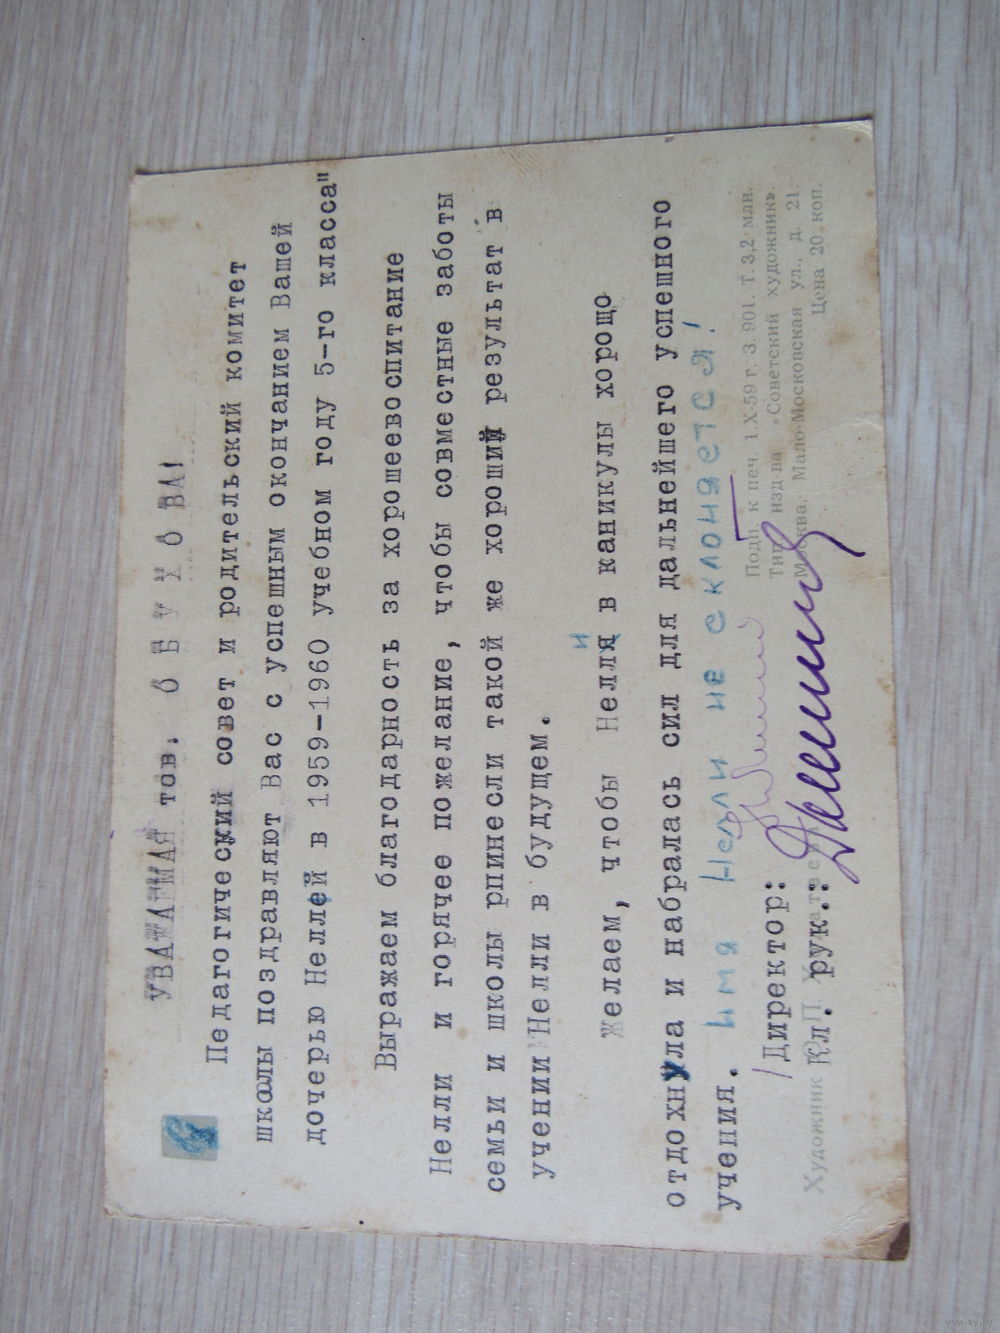 УВАЖАЕМАЯ тов. О Б У Х О ВА!
Педагогический совет и родительский комитет
школы поздравляют Вас с успешным окончанием Вашей
дочерью Неллей в 1959-1960 учебном году 5-го класса"
Выражаем благодарность за хорошеевоспитание
Нелли и горячее пожелание, чтобы совместные заботы
семьи и школы рпинесли такой же хороший результат в
учении Нелли в будущем.
Желаем, чтобы Нелли в каникулы хорошо
отдохнула и набралась сил для дальнейшего успешного
учения. Имя Нелли не склоняется!
Подп. к печ. 1.X-59 г. З. 901. Т. 3,2 млн.
Тип. изд-ва «Советский художник».
Москва. Мало-Московская ул., д. 21.
Цена 20 коп.
Директор:
Художник
Кл. рук.:
www.ay.by